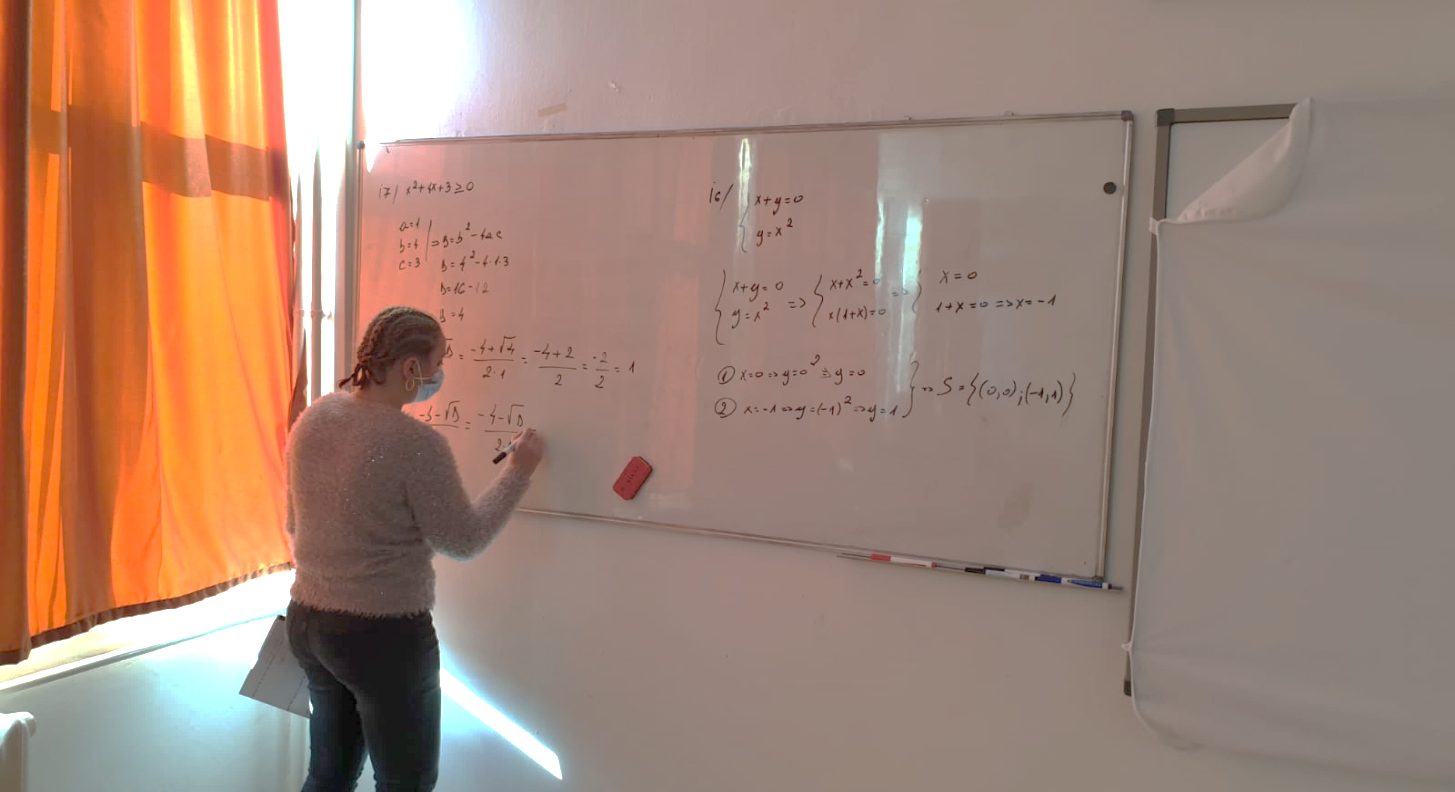 17/ x²+4x+3≥0
a=1
b=4 => D=b²-4ac
c=3 D=4²-4·1·3
D=16-12
D=4
= (-4+√4)/(2·1) = (-4+2)/2 = (-2)/2 = 1
-4-√D = (-4-√D)/2·
16/ { x+y=0
y=x²
{ x+y=0 => { x+x²=0 => { x=0
y=x² x(1+x)=0 1+x=0 => x=-1
① x=0 => y=0² => y=0
② x=-1 => y=(-1)² => y=1 } => S={(0,0);(-1,1)}